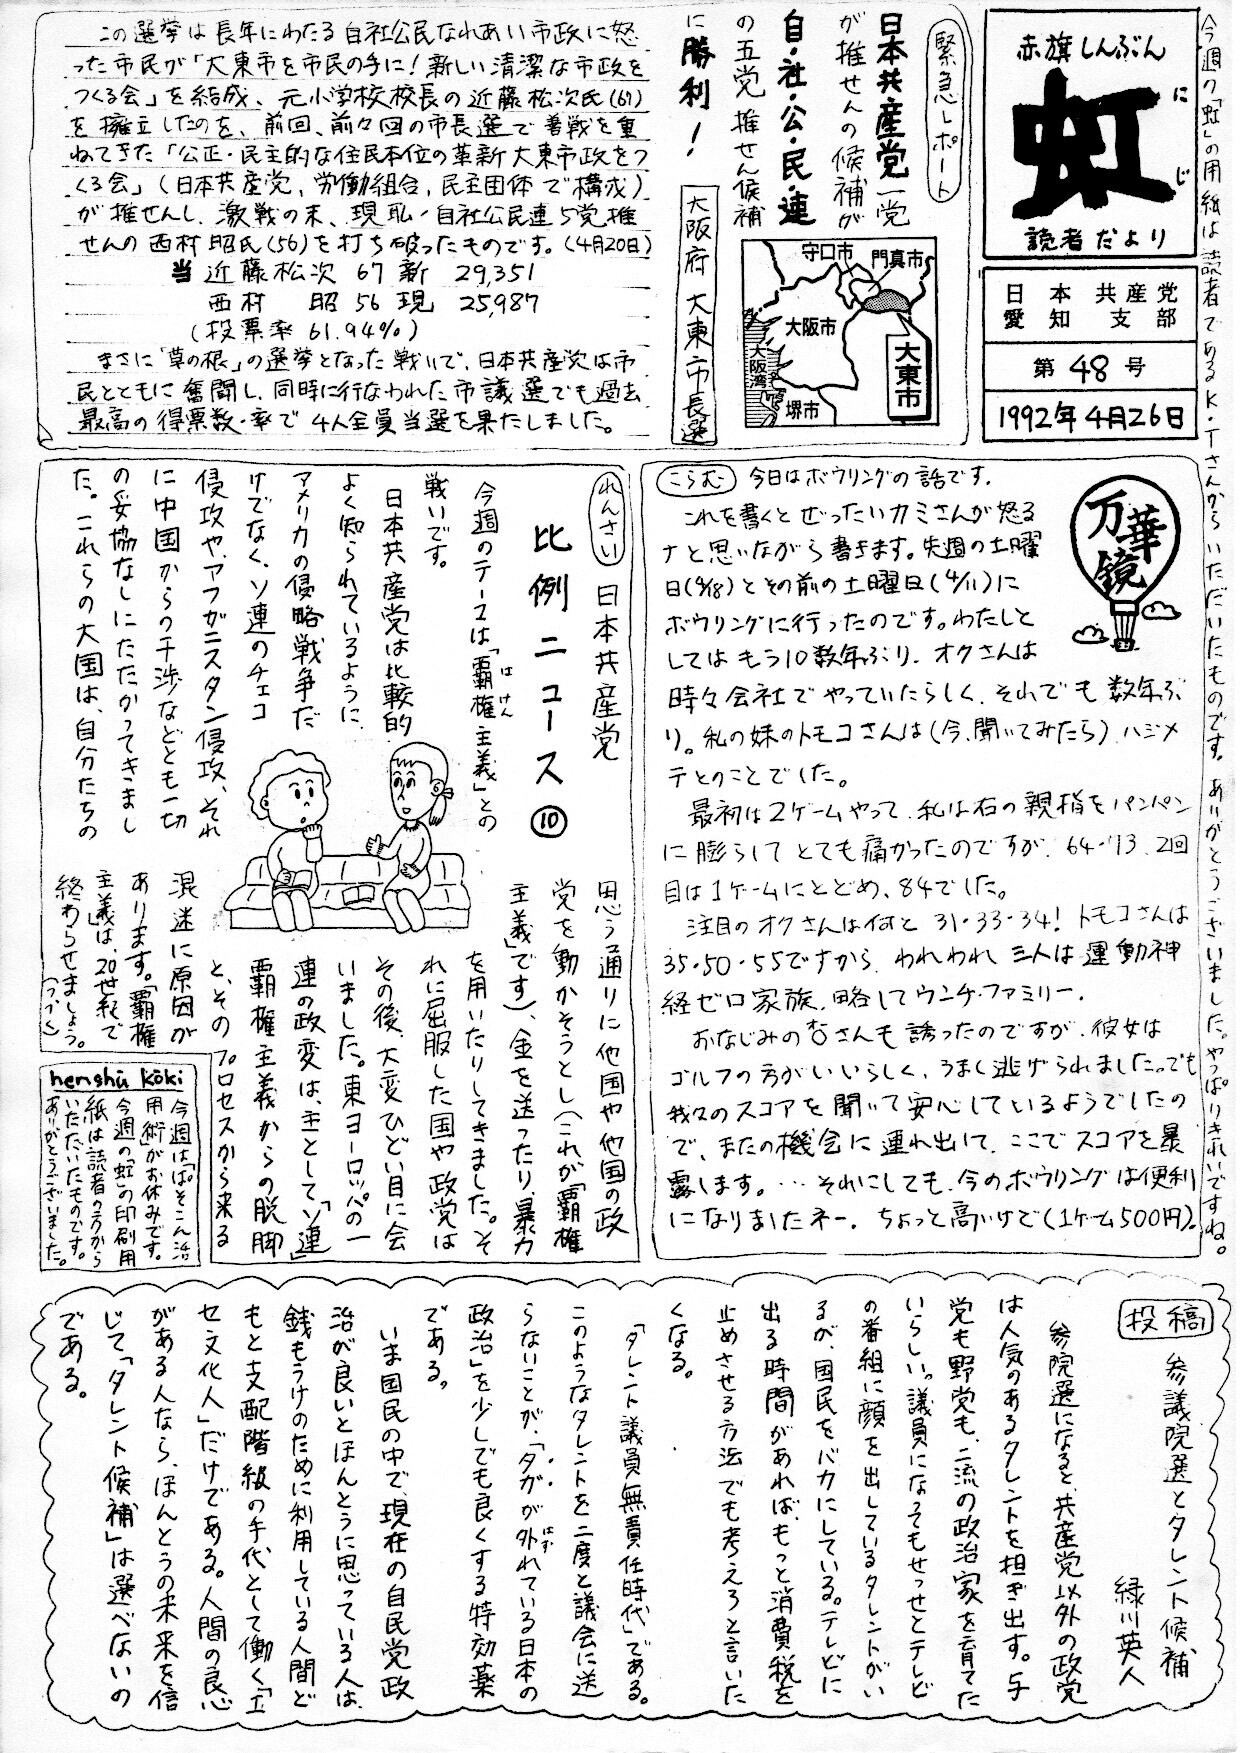 今週の「虹」の用紙は読者であるK・Tさんからいただいたものです。ありがとうございました。やっぱりきれいですね。
赤旗しんぶん
虹
にじ
読者だより
日本共産党
愛知支部
第48号
1992年4月26日
緊急レポート
日本共産党一党
が推せんの候補が
自・社・公・民・連
の五党推せん候補
に勝利！
大阪府大東市長選
守口市
門真市
大阪市
大阪湾
堺市
大東市
この選挙は長年にわたる自社公民なれあい市政に怒
った市民が「大東市を市民の手に！新しい清潔な市政を
つくる会」を結成、元小学校校長の近藤松次氏(67)
を擁立したのを、前回、前々回の市長選で善戦を重
ねてきた「公正・民主的な住民本位の革新大東市政をつ
くる会」(日本共産党,労働組合,民主団体で構成)
が推せんし、激戦の末、現職・自社公民連5党推
せんの西村昭氏(56)を打ち破ったものです。(4月20日)
当 近藤松次 67 新 29,351
西村 昭 56 現 25,987
(投票率 61.94%)
まさに「草の根」の選挙となった戦いで、日本共産党は市
民とともに奮闘し、同時に行なわれた市議選でも過去
最高の得票数・率で4人全員当選を果たしました。
万華鏡
こらむ 今日はボウリングの話です.
これを書くとぜったいカミさんが怒る
ナと思いながら書きます。先週の土曜
日(4/18)とその前の土曜日(4/11)に
ボウリングに行ったのです。わたしと
してはもう10数年ぶり. オクさんは
時々会社でやっていたらしく、それでも数年ぶ
り。私の妹のトモコさんは(今、聞いてみたら)ハジメ
テとのことでした。
最初は2ゲームやって、私は右の親指をパンパン
に膨らしてとても痛かったのですが、64・73、2回
目は1ゲームにとどめ、84でした。
注目のオクさんは何と31・33・34！トモコさんは
35・50・55ですから、われわれ三人は運動神
経ゼロ家族. 略してウンチ・ファミリー.
おなじみのなさんも誘ったのですが、彼女は
ゴルフの方がいいらしく、うまく逃げられました。でも
我々のスコアを聞いて安心しているようでしたの
で、またの機会に連れ出して、ここでスコアを暴
露します。…それにしても、今のボウリングは便利
になりましたネー. ちょっと高いけど(1ゲーム500円)。
れんさい
日本共産党
比例ニュース⑩
今週のテーマは「覇権主義」との
はけん
戦いです。
日本共産党は比較的
よく知られているように、
アメリカの侵略戦争だ
けでなく、ソ連のチェコ
侵攻や、アフガニスタン侵攻、それ
に中国からの干渉などとも一切
の妥協なしにたたかってきまし
た。これらの大国は、自分たちの
思う通りに他国や他国の政
党を動かそうとし(これが「覇権
主義」です)、金を送ったり、暴力
を用いたりしてきました。そ
れに屈服した国や政党は
その後、大変ひどい目に会
いました。東ヨーロッパの一
連の政変は、主として「ソ連」
覇権主義からの脱脚
と、そのプロセスから来る
混迷に原因が
あります。「覇権
主義」は、20世紀で
終わらせましょう。
(つづく)
henshū kōki
今週は「ぱそこん活
用術」がお休みです。
今週の「虹」の印刷用
紙は読者の方から
いただいたものです。
ありがとうございました。
投稿
参議院選とタレント候補
緑川英人
参院選になると、共産党以外の政党
は人気のあるタレントを担ぎ出す。与
党も野党も、二流の政治家を育てた
いらしい。議員になってもせっせとテレビ
の番組に顔を出しているタレントがい
るが、国民をバカにしている。テレビに
出る時間があれば、もっと消費税を
止めさせる方法でも考えろと言いた
くなる。
「タレント議員無責任時代」である。
このようなタレントを二度と議会に送
らないことが、「タガが外れている日本の
はず
政治」を少しでも良くする特効薬
である。
いま国民の中で、現在の自民党政
治が良いとほんとうに思っている人は、
銭もうけのために利用している人間ど
もと支配階級の手代として働く「エ
セ文化人」だけである。人間の良心
がある人なら、ほんとうの未来を信
じて「タレント候補」は選べないの
である。